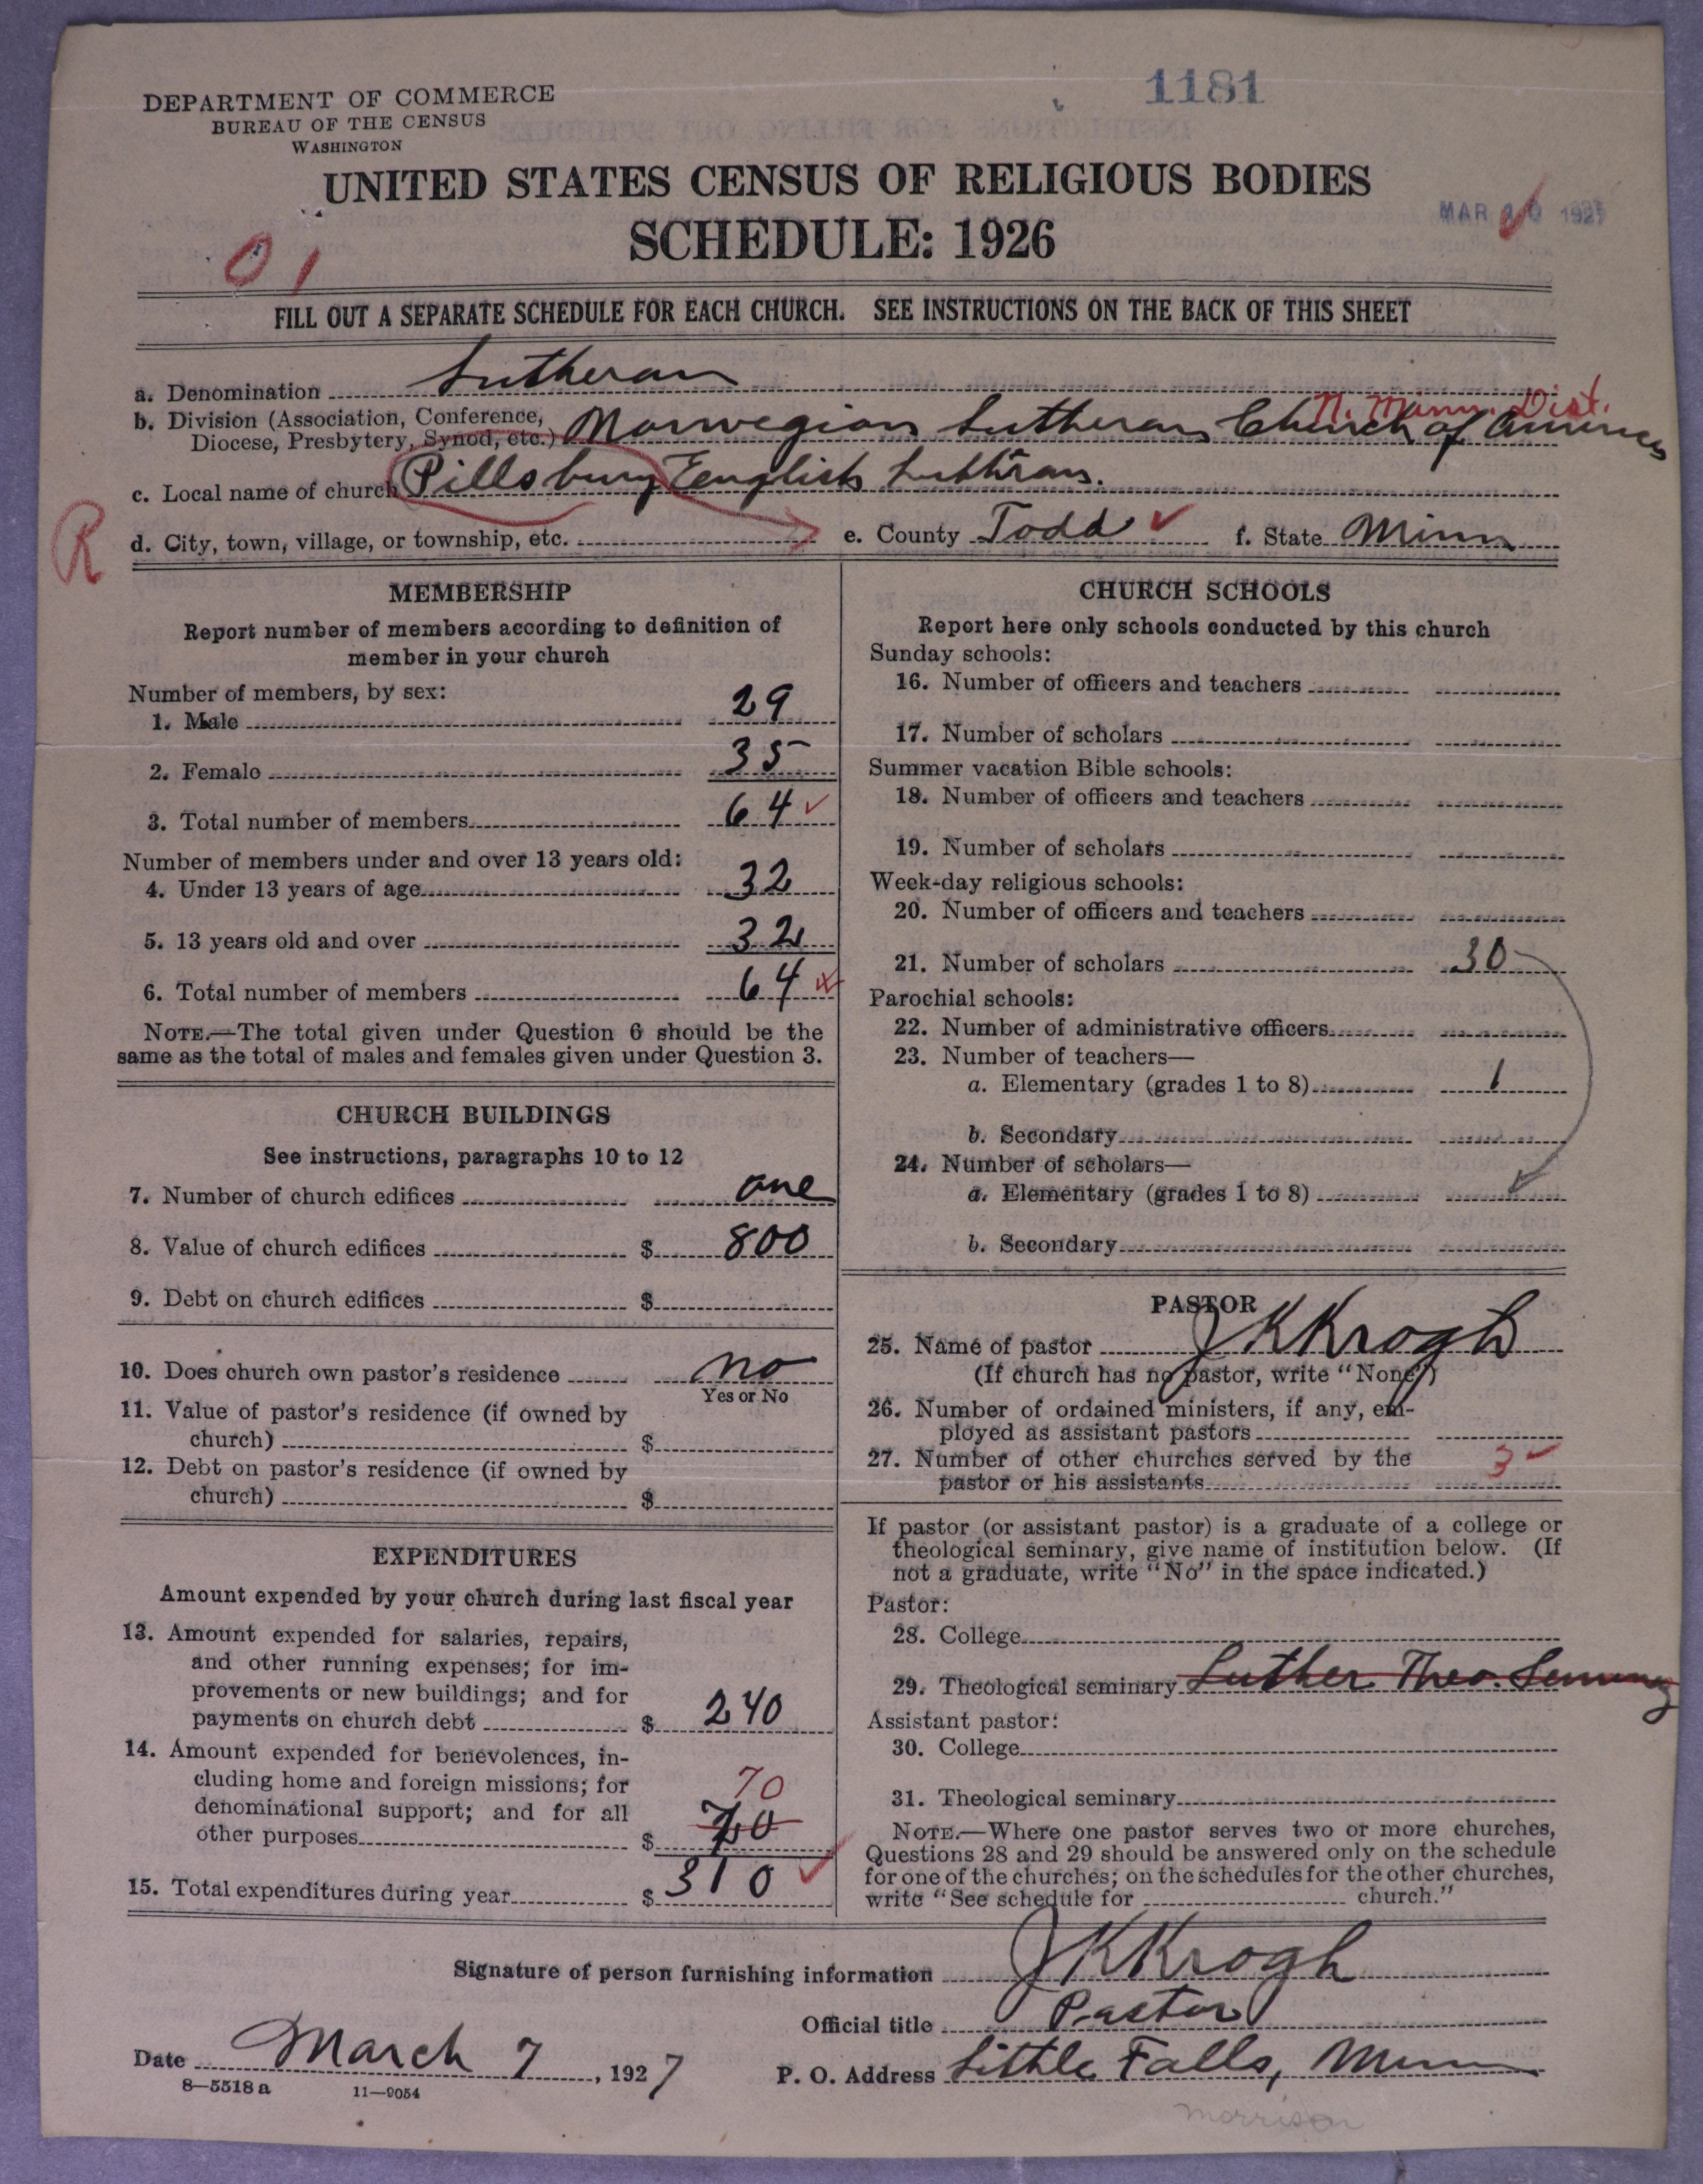 1181
DEPARTMENT OF COMMERCE
BUREAU OF THE CENSUS
WASHINGTON
UNITED STATES CENSUS OF RELIGIOUS BODIES
MAR 10 1927
SCHEDULE: 1926
01
FILL OUT A SEPARATE SCHEDULE FOR EACH CHURCH. SEE INSTRUCTIONS ON THE BACK OF THIS SHEET
a. Denomination Lutheran
N. Minn. Dist.
b. Division (Association, Conference,
Diocese, Presbytery, Synod, etc.) Norwegian Lutheran Church of America
c. Local name of church Pillsbury English Lutheran.
R
d. City, town, village, or township, etc. e. County Todd f. State Minn
MEMBERSHIP
Report number of members according to definition of
member in your church
Number of members, by sex:
1. Male 29
2. Female 35
3. Total number of members 64
Number of members under and over 13 years old:
4. Under 13 years of age 32
5. 13 years old and over 32
6. Total number of members 64
NOTE.—The total given under Question 6 should be the
same as the total of males and females given under Question 3.
CHURCH BUILDINGS
See instructions, paragraphs 10 to 12
7. Number of church edifices one
8. Value of church edifices $ 800
9. Debt on church edifices $
10. Does church own pastor's residence no
Yes or No
11. Value of pastor's residence (if owned by
church) $
12. Debt on pastor's residence (if owned by
church) $
EXPENDITURES
Amount expended by your church during last fiscal year
13. Amount expended for salaries, repairs,
and other running expenses; for im-
provements or new buildings; and for
payments on church debt $ 240
14. Amount expended for benevolences, in-
cluding home and foreign missions; for 70
denominational support; and for all
other purposes $ 70
15. Total expenditures during year $ 310
CHURCH SCHOOLS
Report here only schools conducted by this church
Sunday schools:
16. Number of officers and teachers
17. Number of scholars
Summer vacation Bible schools:
18. Number of officers and teachers
19. Number of scholars
Week-day religious schools:
20. Number of officers and teachers
21. Number of scholars 30
Parochial schools:
22. Number of administrative officers
23. Number of teachers—
a. Elementary (grades 1 to 8) 1
b. Secondary
24. Number of scholars—
a. Elementary (grades 1 to 8)
b. Secondary
PASTOR
25. Name of pastor J K Krogh
(If church has no pastor, write "None")
26. Number of ordained ministers, if any, em-
ployed as assistant pastors
27. Number of other churches served by the
pastor or his assistants 3
If pastor (or assistant pastor) is a graduate of a college or
theological seminary, give name of institution below. (If
not a graduate, write "No" in the space indicated.)
Pastor:
28. College
29. Theological seminary Luther Theo. Seminary
Assistant pastor:
30. College
31. Theological seminary
NOTE.—Where one pastor serves two or more churches,
Questions 28 and 29 should be answered only on the schedule
for one of the churches; on the schedules for the other churches,
write "See schedule for church."
Signature of person furnishing information J K Krogh
Official title Pastor
Date March 7, 1927 P. O. Address Little Falls, Minn
8—5518 a 11—9054
morrison